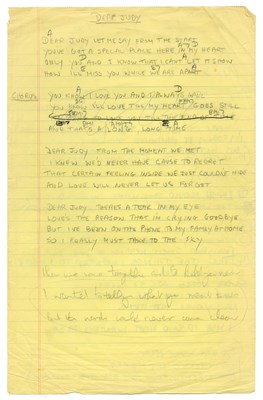 DEAR JUDY
A
DEAR JUDY LET ME SAY FROM THE START
A7 D
YOUVE GOT A SPECIAL PLACE HERE IN MY HEART
D A
ONLY YOU AND I KNOW THAT I CANT LET IT SHOW
E7 A
HOW ILL MISS YOU WHILE WE'RE APART
A D
CHORUS YOU KNOW I LOVE YOU AND I ALWAYS WILL
YOU KNOW I'LL LOVE TILL MY HEART STOOD STILL
AND THATS A LONG LONG TIME
DEAR JUDY FROM THE MOMENT WE MET
I KNEW WED NEVER HAVE CAUSE TO REGRET
THAT CERTAIN FEELING INSIDE WE JUST COULDNT HIDE
AND LOVE WILL NEVER LET US FORGET
DEAR JUDY THERES A TEAR IN MY EYE
LOVES THE REASON THAT IM SAYING GOODBYE
BUT I'VE BEEN ON THE PHONE TO MY FAMILY AT HOME
SO I REALLY MUST TAKE TO THE SKY
we come together
I wanted to tell you what you meant to me
but the words would never come clear